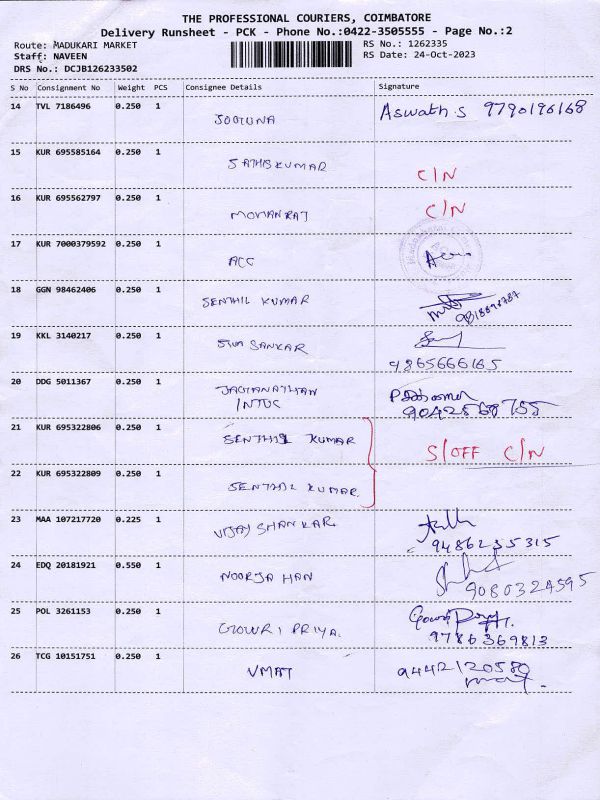 THE PROFESSIONAL COURIERS, COIMBATORE
Delivery Runsheet - PCK - Phone No.:0422-3505555 - Page No.:2
Route: MADUKARI MARKET RS No.: 1262335
Staff: NAVEEN RS Date: 24-Oct-2023
DRS No.: DCJB126233502
S No Consignment No Weight PCS Consignee Details Signature
14 TVL 7186496 0.250 1 Aswath.S 9790196168
15 KUR 695585164 0.250 1 SATHISKUMAR C/N
16 KUR 695562797 0.250 1 MOHANRAJ C/N
17 KUR 7000379592 0.250 1 ACC
18 GGN 98462406 0.250 1 SENTHIL KUMAR
19 KKL 3140217 0.250 1 SIVA SANKAR
9865666165
20 DDG 5011367 0.250 1 JAGANATHAN
INTUC
21 KUR 695322806 0.250 1 SENTHIL KUMAR S/OFF C/N
22 KUR 695322809 0.250 1 SENTHIL KUMAR
23 MAA 107217720 0.225 1 VIJAY SHANKAR
9486235315
24 EDQ 20181921 0.550 1 NOORJAHAN
9080324595
25 POL 3261153 0.250 1 GOWRI PRIYA.
9786369813
26 TCG 10151751 0.250 1 VMAT 9442120580